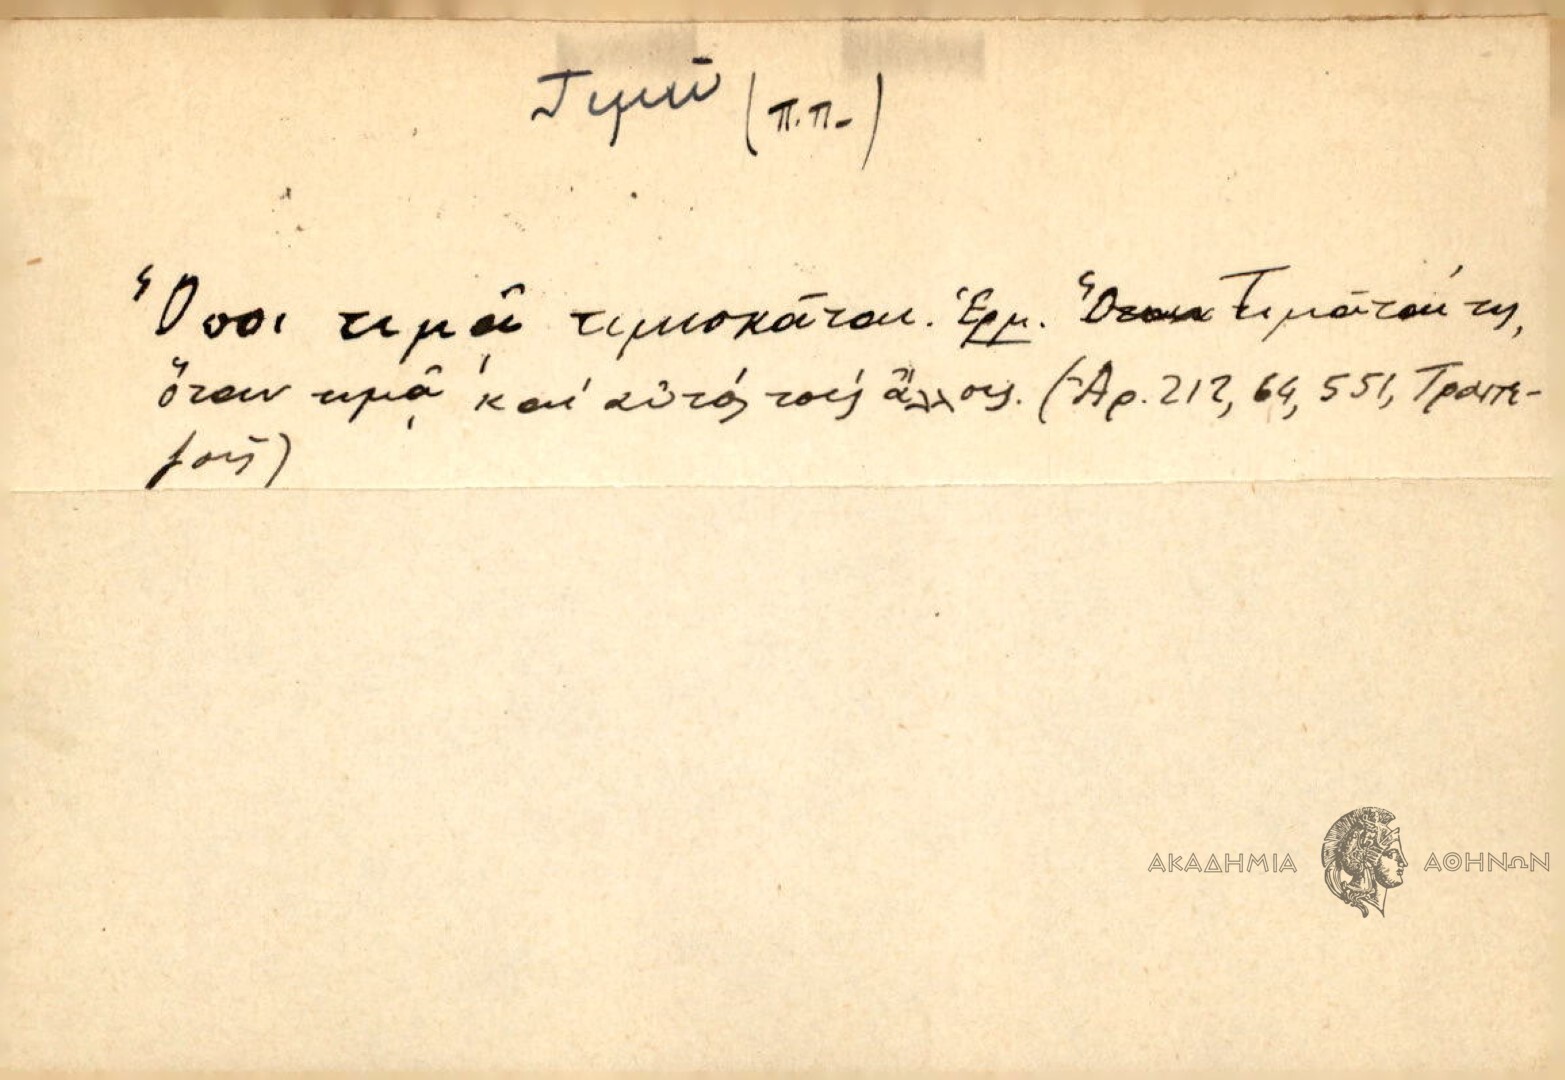 Τιμῶ (π.π.)
Ὅποι τιμᾷ τιμισκᾶται. Ἑρμ. Τιμᾶταί τις,
ὅταν τιμᾷ καὶ αὐτὸς τοὺς ἄλλους. (Ἀρ. 212, 64, 551, Τραπε-
ζοῦς)
ΑΚΑΔΗΜΙΑ ΑΘΗΝΩΝ